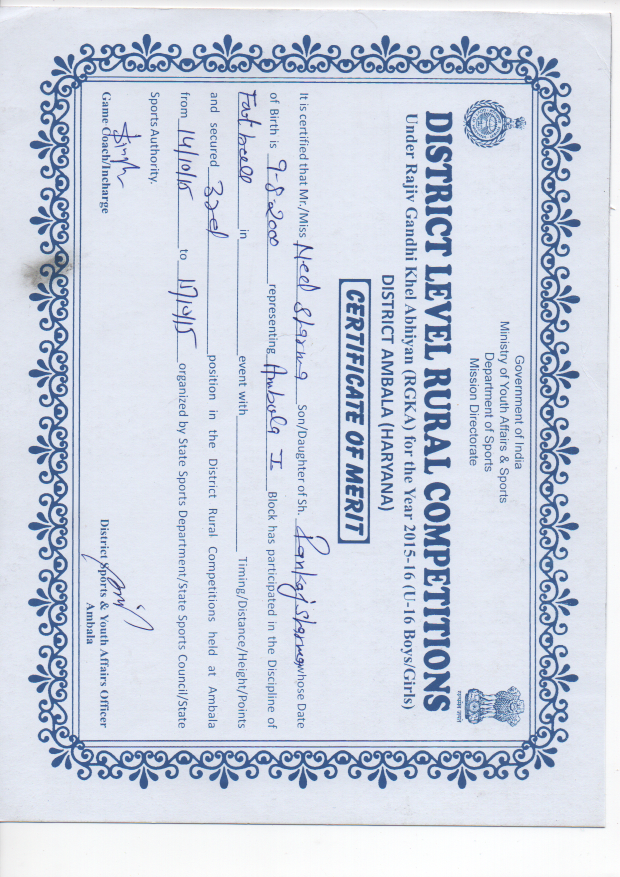 Government of India
Ministry of Youth Affairs & Sports
Department of Sports
Mission Directorate
DISTRICT LEVEL RURAL COMPETITIONS
Under Rajiv Gandhi Khel Abhiyan (RGKA) for the Year 2015-16 (U-16 Boys/Girls)
DISTRICT AMBALA (HARYANA)
CERTIFICATE OF MERIT
It is certified that Mr./Miss Neel Sharma Son/Daughter of Sh. Pankaj Sharma whose Date
of Birth is 9-8-2000 representing Ambala I Block has participated in the Discipline of
in event with Timing/Distance/Height/Points
and secured 3rd position in the District Rural Competitions held at Ambala
from 14/10/15 to 15/10/15 organized by State Sports Department/State Sports Council/State
Sports Authority.
Game Coach/Incharge
District Sports & Youth Affairs Officer
Ambala